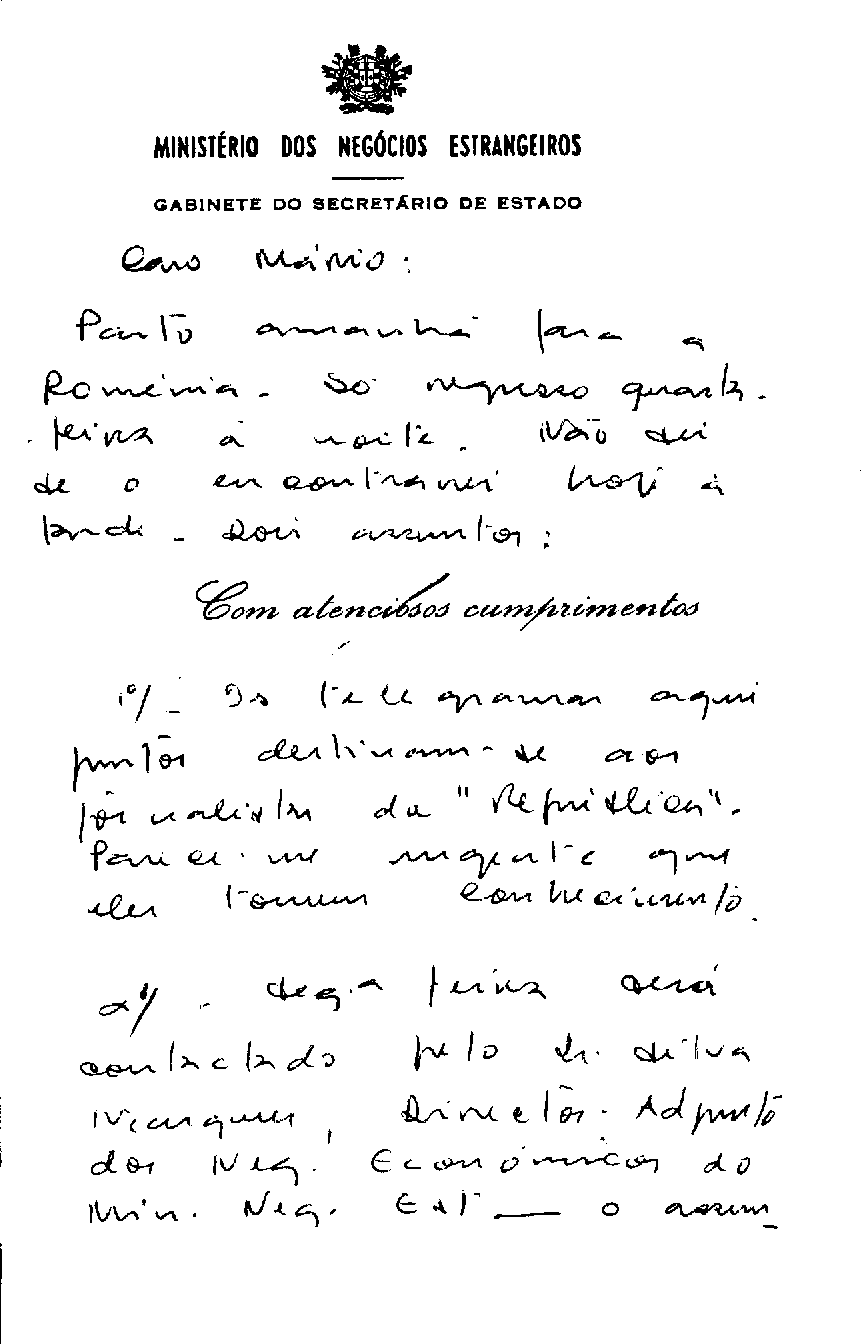 MINISTÉRIO DOS NEGÓCIOS ESTRANGEIROS
GABINETE DO SECRETÁRIO DE ESTADO
Caro Mário:
Parto amanhã para a
Roménia. Só regresso quarta-
-feira à noite. Não sei
se o encontrarei hoje à
tarde. Dois assuntos:
Com atenciosos cumprimentos
1º/ - Os telegramas aqui
juntos destinam-se aos
jornalistas da "República".
Parece-me urgente que
eles tomem conhecimento.
2º/ - Seg.ª feira será
contactado pelo Dr. Silva
Marques, Director-Adjunto
dos Neg. Económicos do
Min. Neg. Est — o assun_